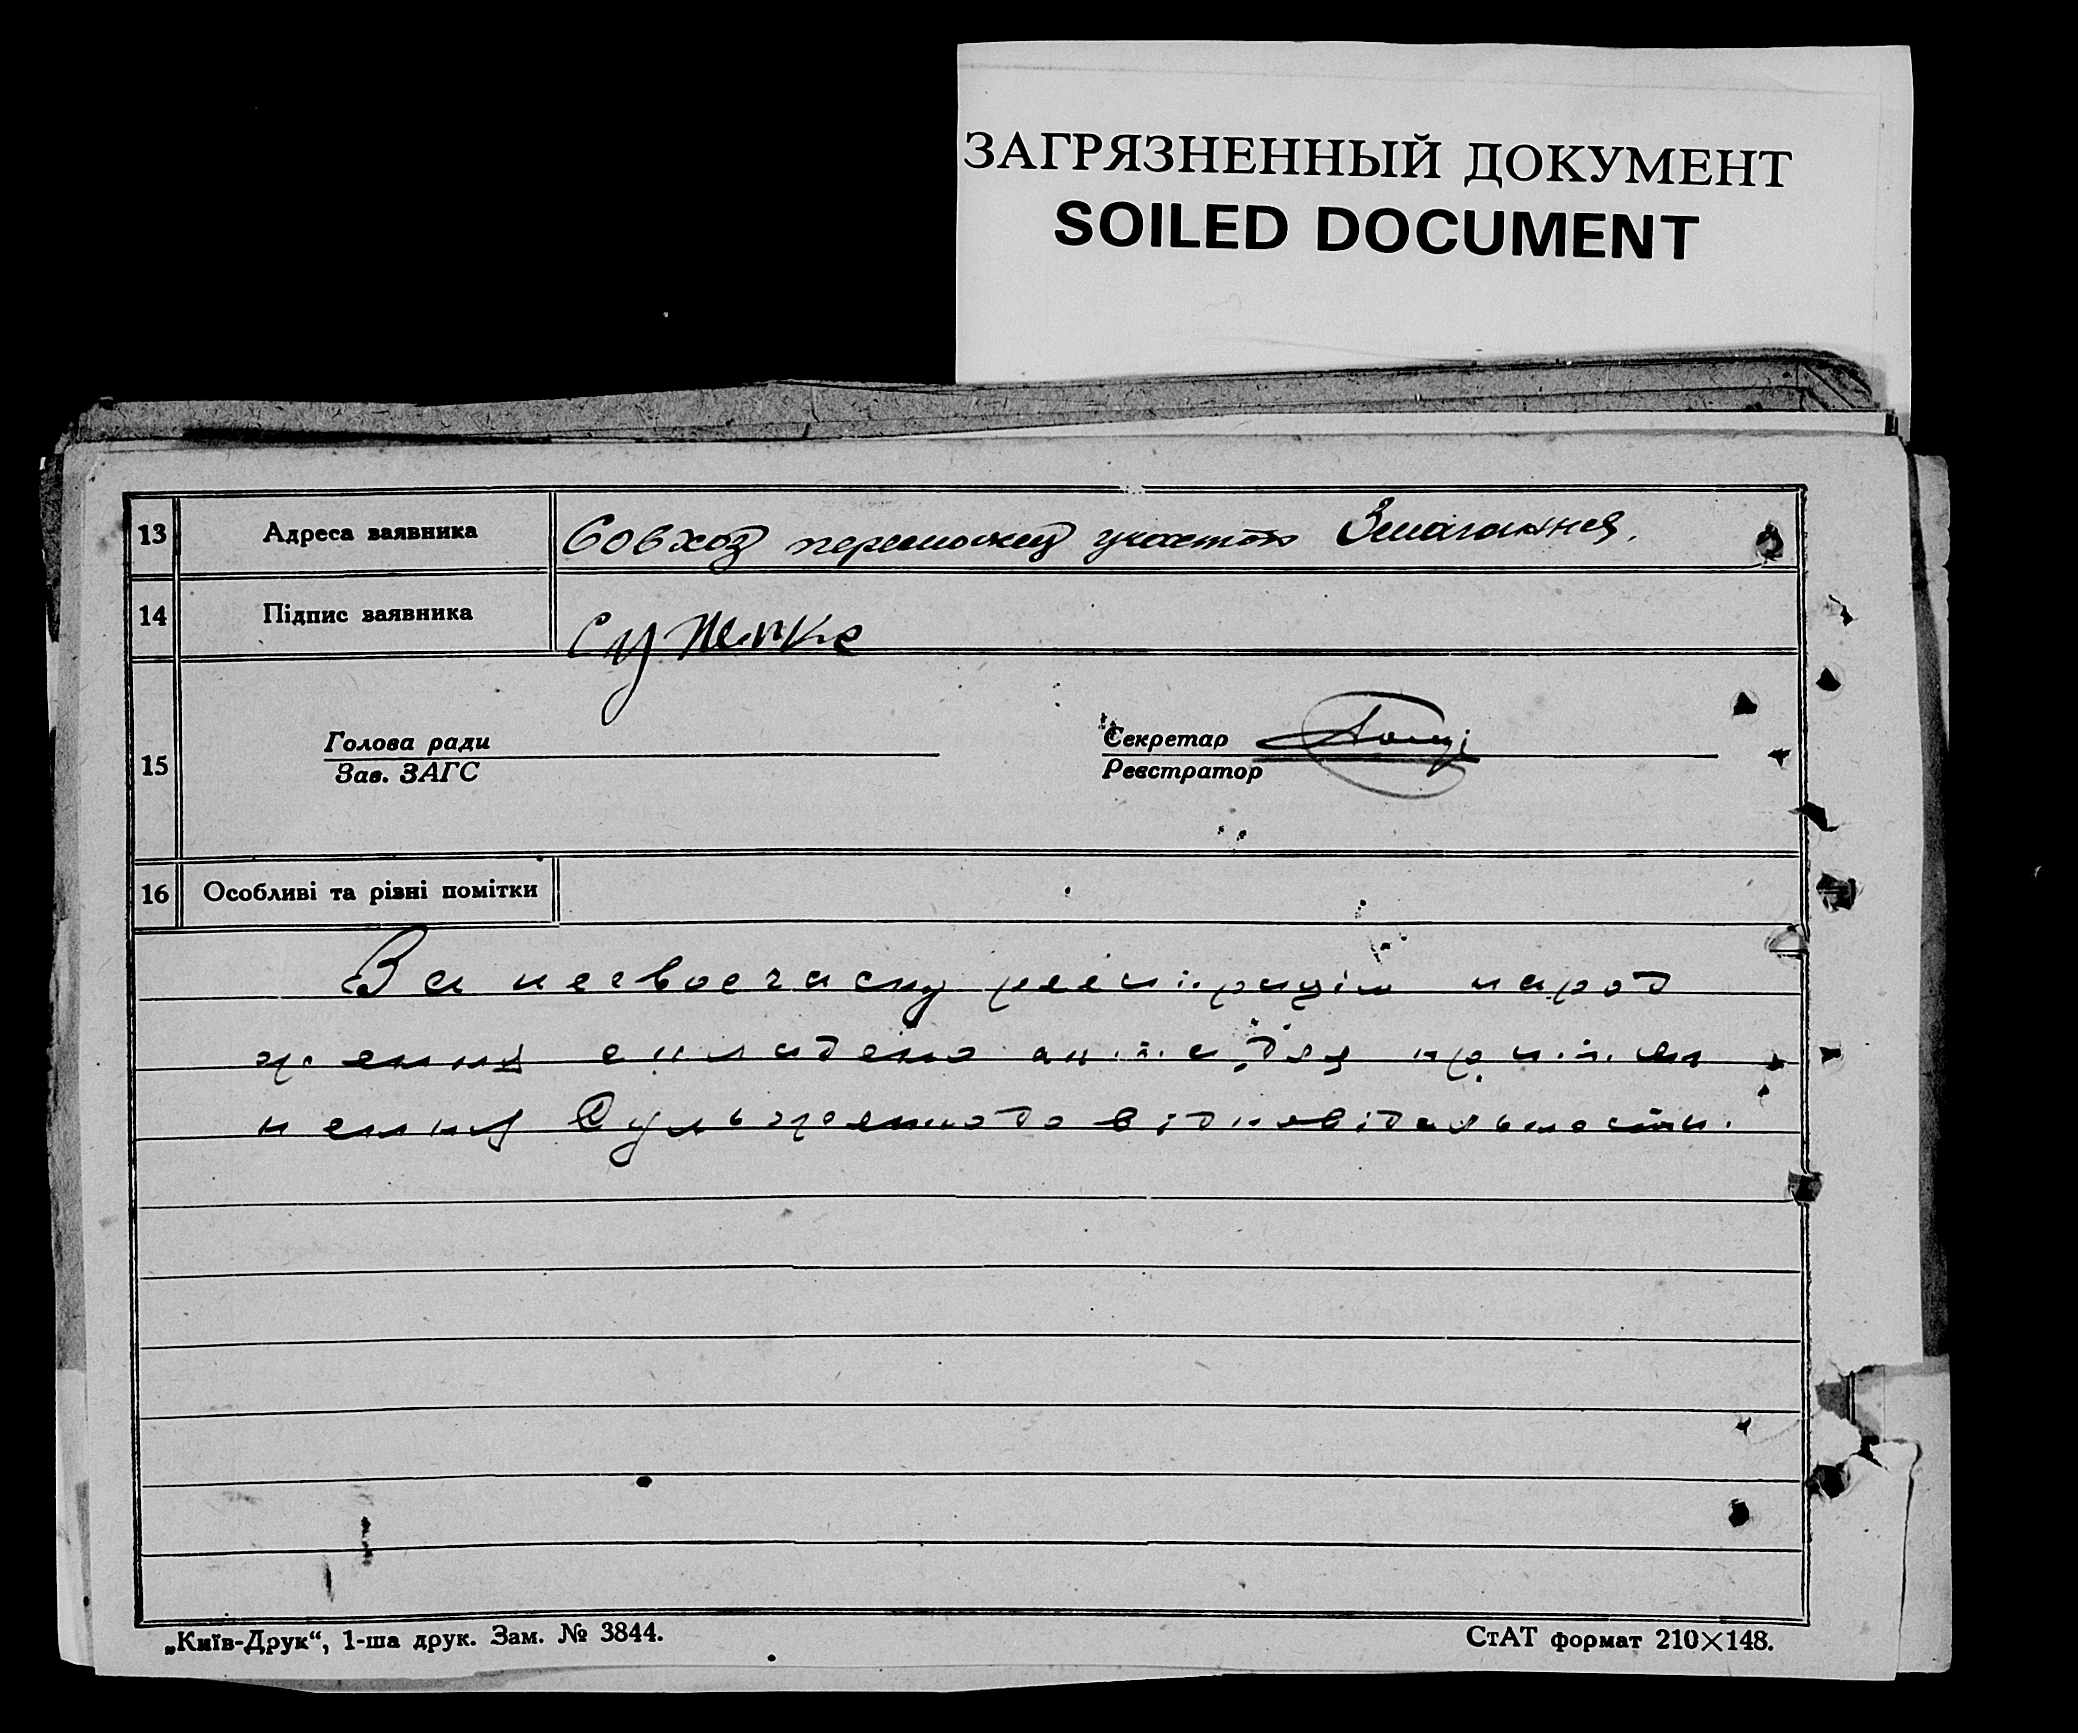 ЗАГРЯЗНЕННЫЙ ДОКУМЕНТ
SOILED DOCUMENT
13 Адреса заявника Совхоз переможец участок Змагання.
14 Підпис заявника
15 Голова ради Секретар
Зав. ЗАГС Реєстратор
16 Особливі та різні помітки
За несвоечасну реєстрацію народ
ження складено акт для притяг
нення відповідальности.
„Київ-Друк“, 1-ша друк. Зам. № 3844. СтАТ формат 210×148.